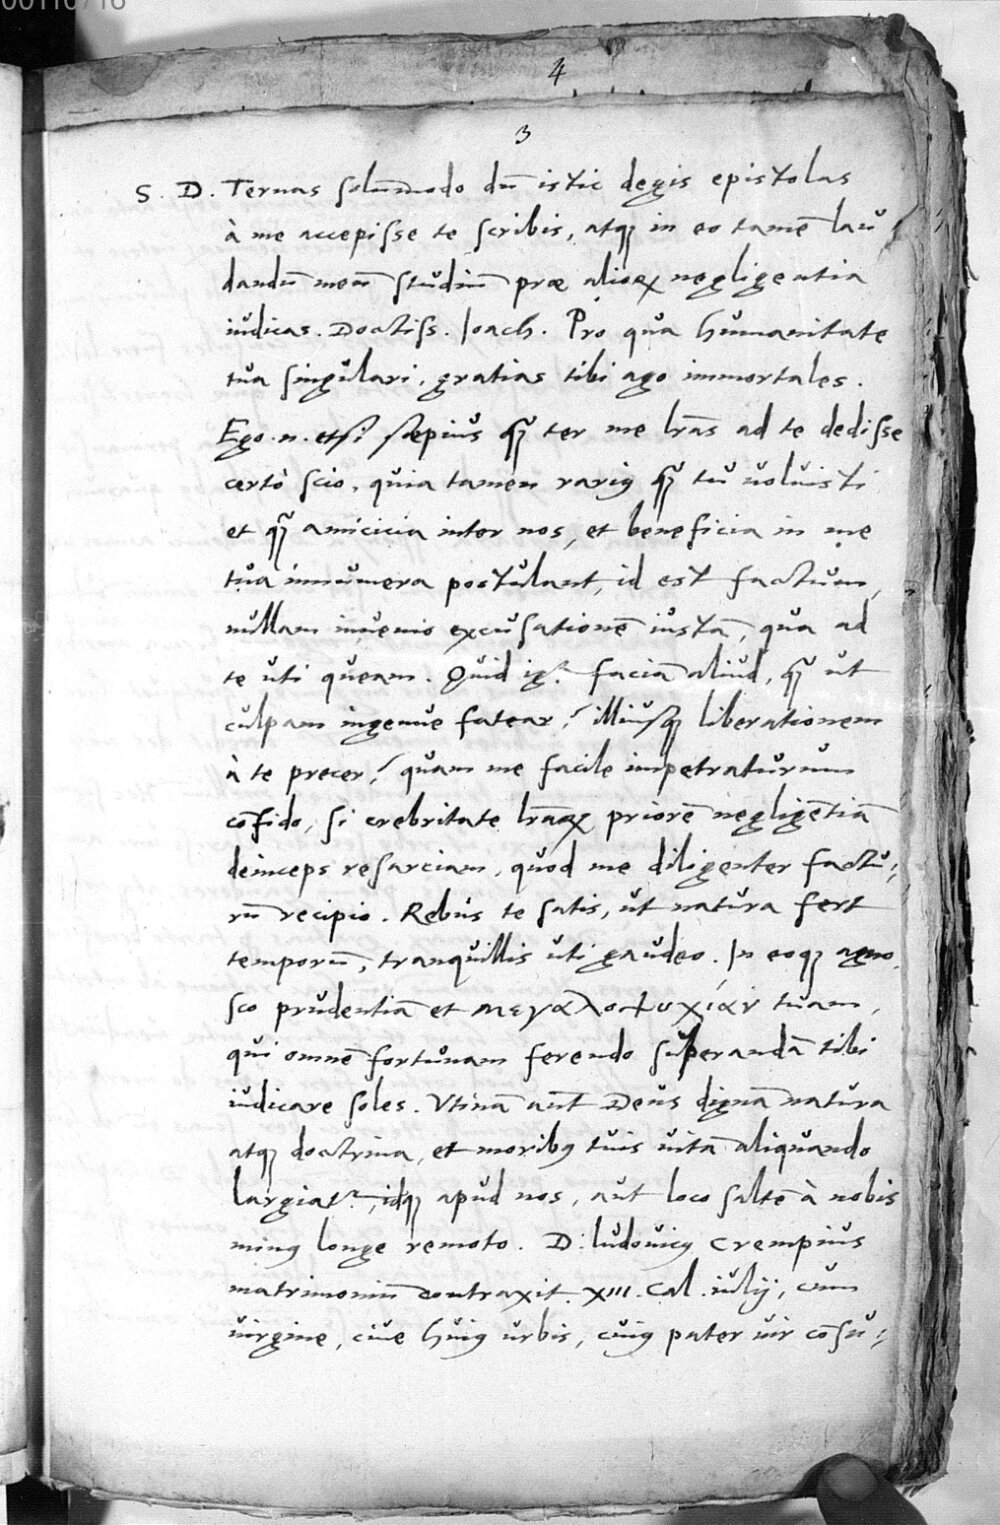 00110716
4
3
S. D. Ternas solum̄odo dū istic degis epistolas
à me accepisse te scribis, atqꝫ in eo tamē lau
dandū meū studiū præ alioꝝ negligentia
iudicas. Doctiss. Ioach. Pro qua humanitate
tua singulari, gratias tibi ago immortales.
Ego .n. etsi sæpius qꝫ̄ ter me lr̄as ad te dedisse
certò scio, quia tamen rariꝰ qꝫ̄ tu uoluisti
et qꝫ̄ amicicia inter nos, et beneficia in me
tua innumera postulant, id est factum,
nullam inuenio excusationē iustā, qua ad
te uti queam. Quid igr̄. faciā aliud, qꝫ̄ ut
culpam ingenue fatear? illiusqꝫ liberationem
à te precer? quam me facile impetraturum
cōfido, si crebritate lr̄aꝝ priorē negligētiā
deinceps resarciam, quod me diligenter factu:
rū recipio. Rebus te satis, ut natura fert
temporū, tranquillis uti gaudeo. In eoqꝫ agno
sco prudentiā et μεγαλοψυχίαν tuam,
qui omnē fortunam ferendo superandā tibi
iudicare soles. Vtinā aut̄ Deus dignā natura
atqꝫ doctrina, et moribꝰ tuis uitā aliquando
largiatr̄., idqꝫ apud nos, aut loco saltē à nobis
minꝰ longe remoto. D: ludouicꝰ Crempius
matrimoniū contraxit. XIII. Cal. iulij, cum
uirgine, ciue huiꝰ urbis, cuiꝰ pater uir cōsu: